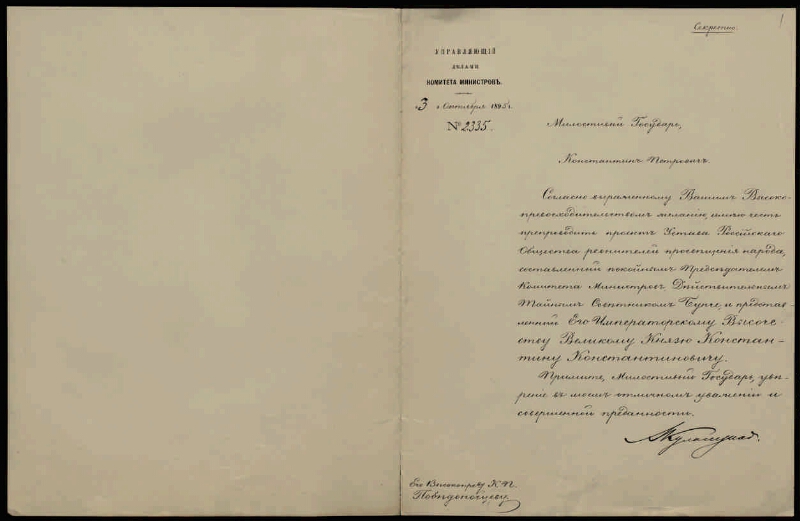 1
Секретно.
УПРАВЛЯЮЩІЙ
ДѢЛАМИ
КОМИТЕТА МИНИСТРОВЪ.
3 Октября 1895 г.
№ 2335.
Милостивый Государь,
Константинъ Петровичъ.
Согласно выраженному Вашимъ Высоко-
превосходительствомъ желанію, имѣю честь
препроводить проектъ Устава Россійскаго
Общества ревнителей просвѣщенія народа,
составленный покойнымъ Предсѣдателемъ
Комитета Министровъ, Дѣйствительнымъ
Тайнымъ Совѣтникомъ Бунге, и представ-
ленный Его Императорскому Высоче-
ству Великому Князю Констан-
тину Константиновичу.
Примите, Милостивый Государь, увѣ-
реніе въ моемъ отличномъ уваженіи и
совершенной преданности.
АКуломзинъ.
Его Высокопрев. К. П.
Побѣдоносцеву.